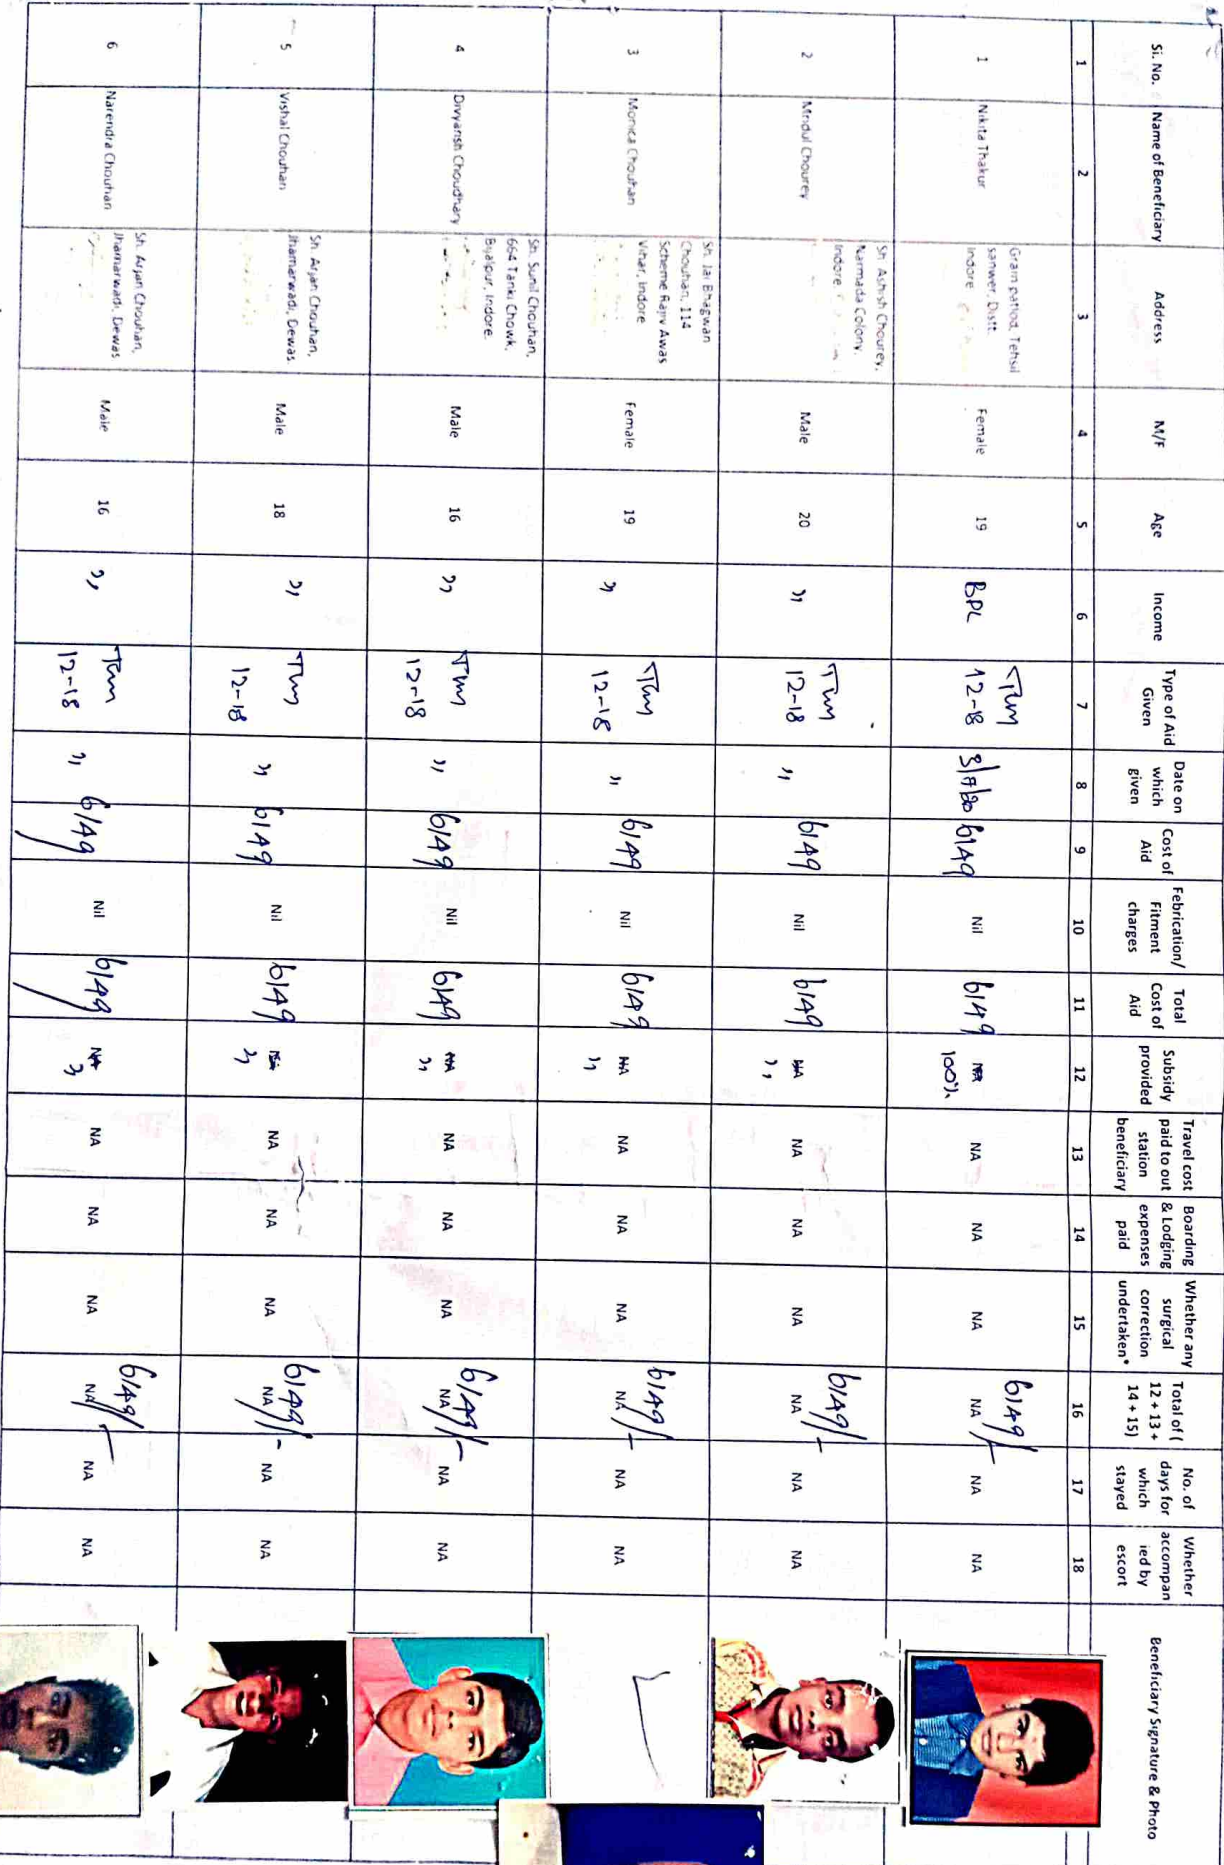 Si. No. Name of Beneficiary Address M/F Age Income Type of Aid Given Date on which given Cost of Aid Febrication/ Fitment charges Total Cost of Aid Subsidy provided Travel cost paid to out station beneficiary Boarding & Lodging expenses paid Whether any surgical correction undertaken* Total of ( 12 + 13 + 14 + 15) No. of days for which stayed Whether accompan ied by escort Beneficiary Signature & Photo
1 2 3 4 5 6 7 8 9 10 11 12 13 14 15 16 17 18
1 Nikita Thakur Gram patlod, Tehsil sanwer, Distt. Indore Female 19 BPL 12-18 6149 Nil 6149 100% NA NA NA 6149/- NA NA NA
2 Mridul Chourey Sh Ashish Chourey, Narmada Colony, Indore Male 20 ,, 12-18 ,, 6149 Nil 6149 NA ,, NA NA NA 6149/- NA NA NA
3 Monica Chouhan Sh. Jai Bhagwan Chouhan, 114 Scheme Rajiv Awas Vihar, Indore Female 19 ,, 12-18 ,, 6149 Nil 6149 NA ,, NA NA NA 6149/- NA NA NA
4 Divyansh Choudhary Sh. Sunil Chouhan, 664 Tanki Chowk, Bijalpur, Indore. Male 16 ,, 12-18 ,, 6149 Nil 6149 NA ,, NA NA NA 6149/- NA NA NA
5 Vishal Chouhan Sh Arjan Chouhan, Jhamarwadi, Dewas Male 18 ,, 12-18 ,, 6149 Nil 6149 ,, NA NA NA 6149/- NA NA NA
6 Narendra Chouhan Sh. Arjan Chouhan, Jhamarwadi, Dewas Male 16 ,, 12-18 ,, 6149 Nil 6149 NA ,, NA NA NA 6149/- NA NA NA